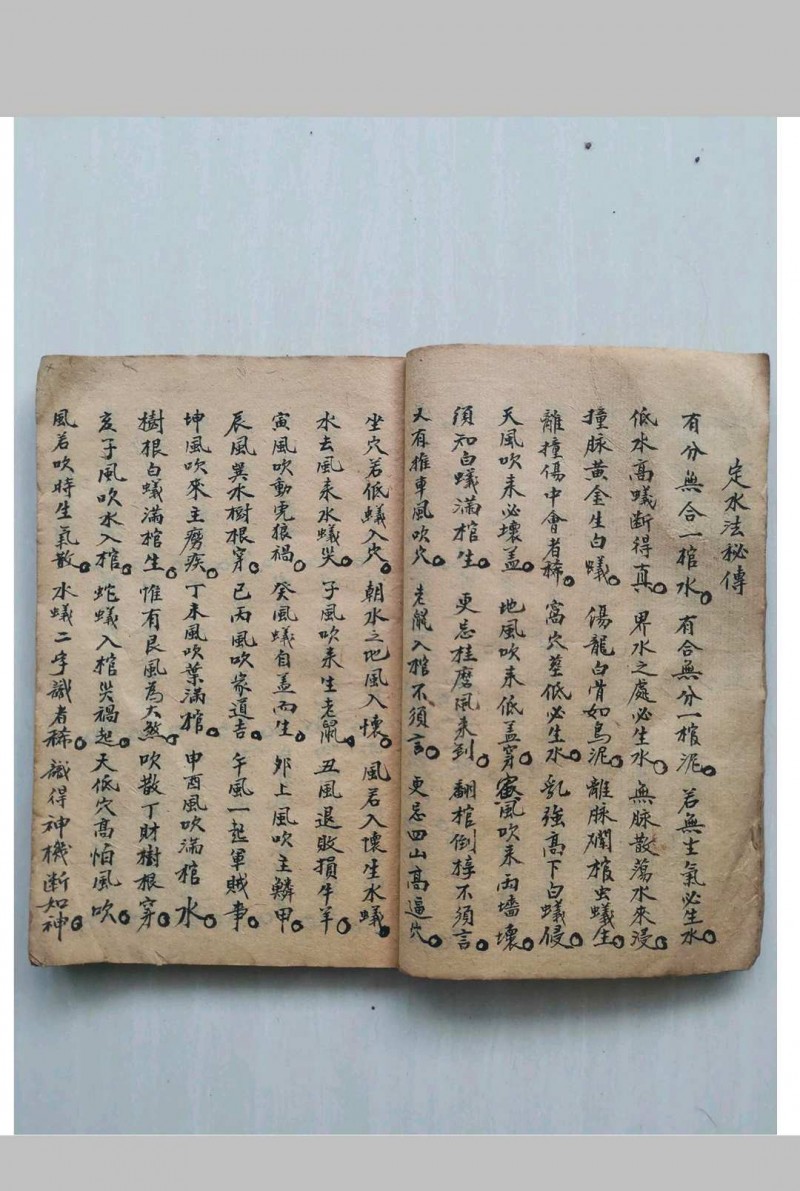 定水法秘傳
有分無合一棺水。有合無分一棺泥。若無生氣必生水。
低水高蟻断得真。界水之處必生水。無脉散蕩水來浸。
撞脉黄金生白蟻。傷龍白骨如烏泥。離脉闊棺虫蟻生。
離撞傷中會者稀。窩穴墓低必生水。乳強高下白蟻侵。
天風吹来必壞盖。地風吹来低盖穿。風吹来両墻壞。
須知白蟻滿棺生。更忌拄磨風来到。翻棺倒㭳不須言。
又有推車風吹穴。老鼠入棺不須言。更忌四山高逼穴。
坐穴若低蟻入穴。朝水之地風入懷。風若入懷生水蟻。
水去風来水蟻災。子風吹来生老鼠。丑風退敗損牛羊。
寅風吹動虎狼禍。癸風蟻自盖而生。夘上風吹主鱗甲。
辰風巽水樹根穿。巳丙風吹家道吉。午風一起軍賊事。
坤風吹來主癆疾。丁未風吹葉滿棺。申酉風吹滿棺水。
樹根白蟻滿棺生。惟有艮風為大煞。吹散丁財樹根穿。
亥子風吹水入棺。蛇蟻入棺災禍起。天低穴高怕風吹。
風若吹時生氣散。水蟻二字識者稀。識得神機断如神。